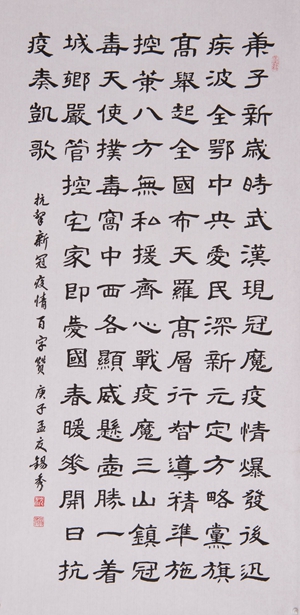 庚子新歲時武漢現冠魔疫情爆發後迅
疾波全鄂中央愛民深新元定方略黨旗
高舉起全國布天羅高層行督導精準施
控策八方無私援齊心戰疫魔三山鎮冠
毒天使撲毒窩中西各顯威懸壺勝一着
城鄉嚴管控宅家即愛國春暖花開日抗
疫奏凱歌
抗擊新冠疫情百字贊 庚子孟夏錫秀